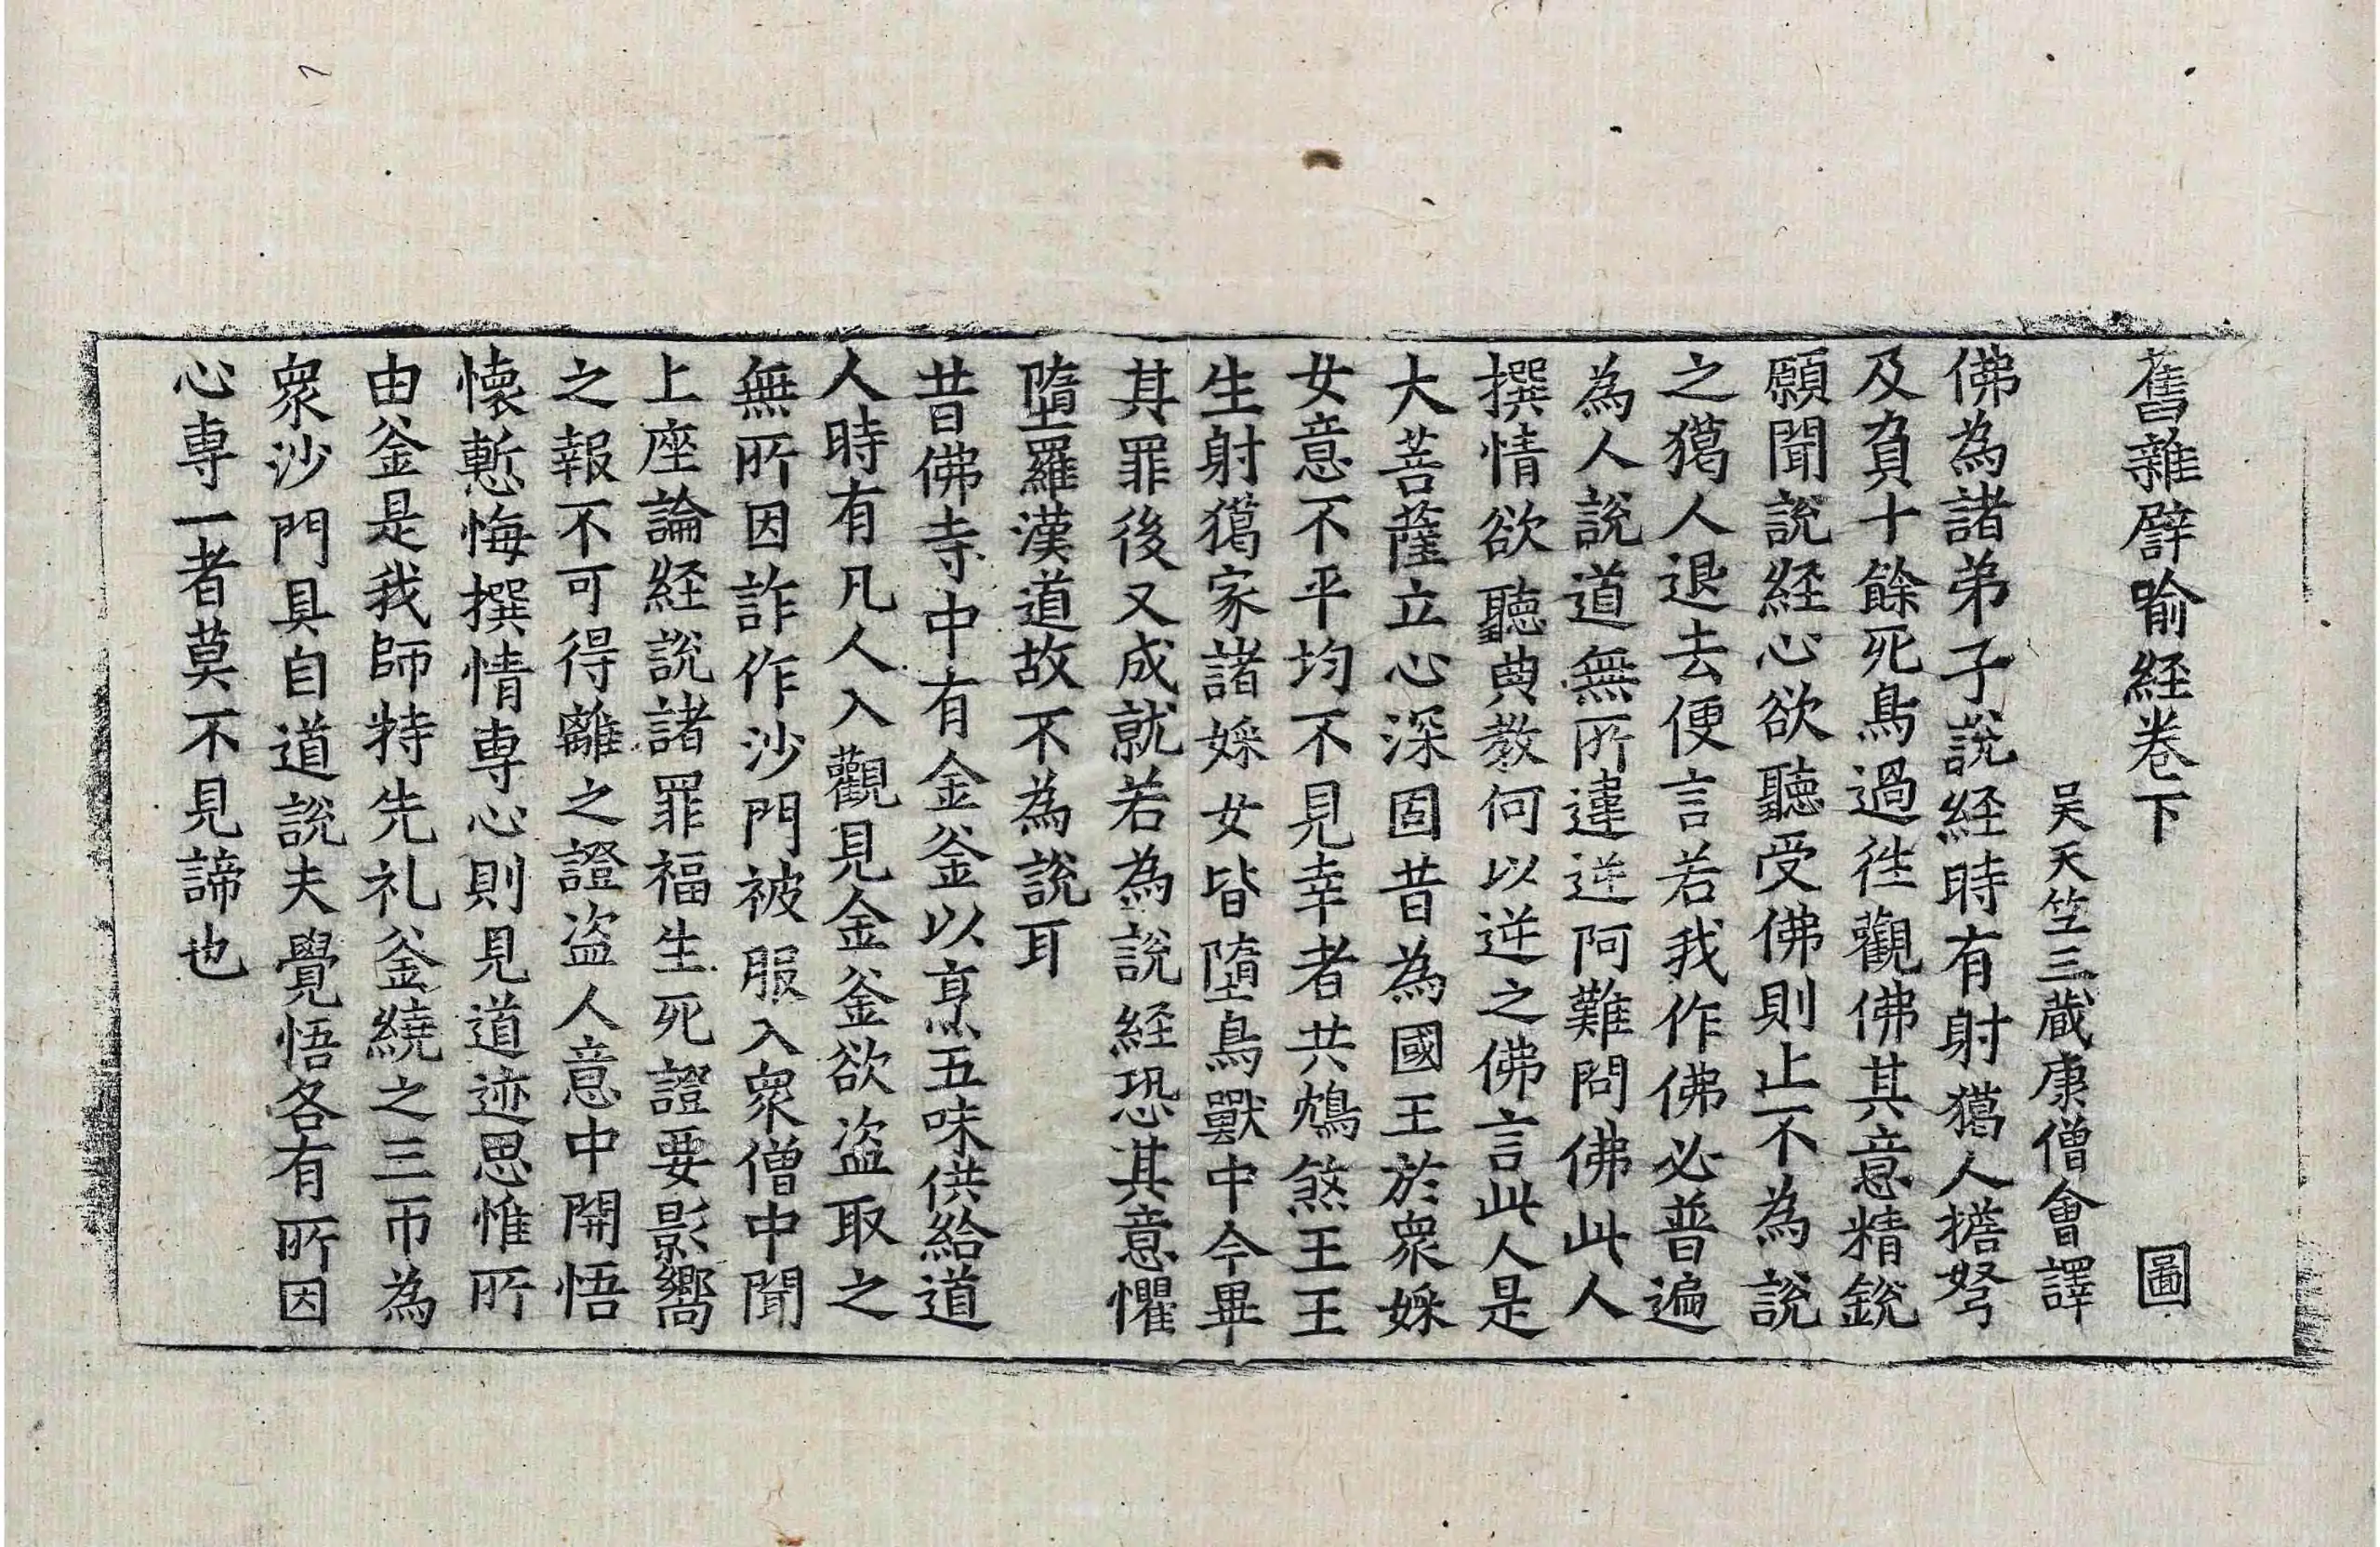 舊雜譬喻経卷下 圖
吴天竺三藏康僧會譯
佛為諸弟子說経時有射獦人擔弩
及負十餘死鳥過徃觀佛其意精銳
願聞說経心欲聽受佛則止不為說
之獦人退去便言若我作佛必普遍
為人說道無所違逆阿難問佛此人
撰情欲聽典教何以逆之佛言此人是
大菩薩立心深固昔為國王於衆婇
女意不平均不見幸者共鴆煞王王
生射獦家諸婇女皆墮鳥獸中今畢
其罪後又成就若為說経恐其意懼
墮羅漢道故不為說耳
昔佛寺中有金釜以烹五味供給道
人時有凡人入觀見金釜欲盗取之
無所因詐作沙門被服入衆僧中聞
上座論経說諸罪福生死證要影嚮
之報不可得離之證盗人意中開悟
懐慙悔撰情専心則見道迹思惟所
由釜是我師特先礼釜繞之三帀為
衆沙門具自道說夫覺悟各有所因
心専一者莫不見諦也